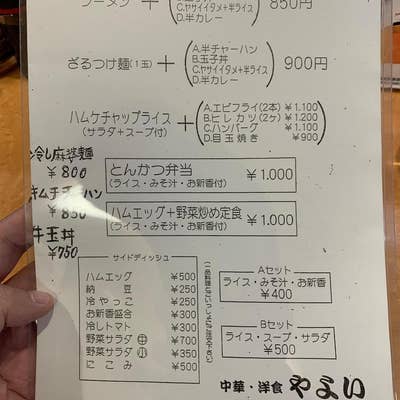 ラーメン + 850円
C.ヤサイイタメ+半ライス
D.半カレー
ざるつけ麺(1玉) + 900円
A.半チャーハン
B.玉子丼
C.ヤサイイタメ+半ライス
D.半カレー
ハムケチャップライス
(サラダ+スープ付) +
A.エビフライ(2本) ¥1.100
B.ヒレカツ(2ヶ) ¥1.200
C.ハンバーグ ¥1.100
D.目玉焼き ¥900
冷し麻婆麺
¥800
キムチチャーハン
¥850
牛玉丼
¥750
とんかつ弁当
(ライス・みそ汁・お新香付) ¥1.000
ハムエッグ+野菜炒め定食
(ライス・みそ汁・お新香付) ¥1.000
サイドディッシュ
ハムエッグ ¥500
納豆 ¥250
冷やっこ ¥250
お新香盛合 ¥300
冷しトマト ¥300
野菜サラダ 中 ¥700
野菜サラダ 小 ¥350
にこみ ¥500
(一品料理とごいっしょにご注文下さい)
Aセット
ライス・みそ汁・お新香
¥400
Bセット
ライス・スープ・サラダ
¥500
中華・洋食 やよい